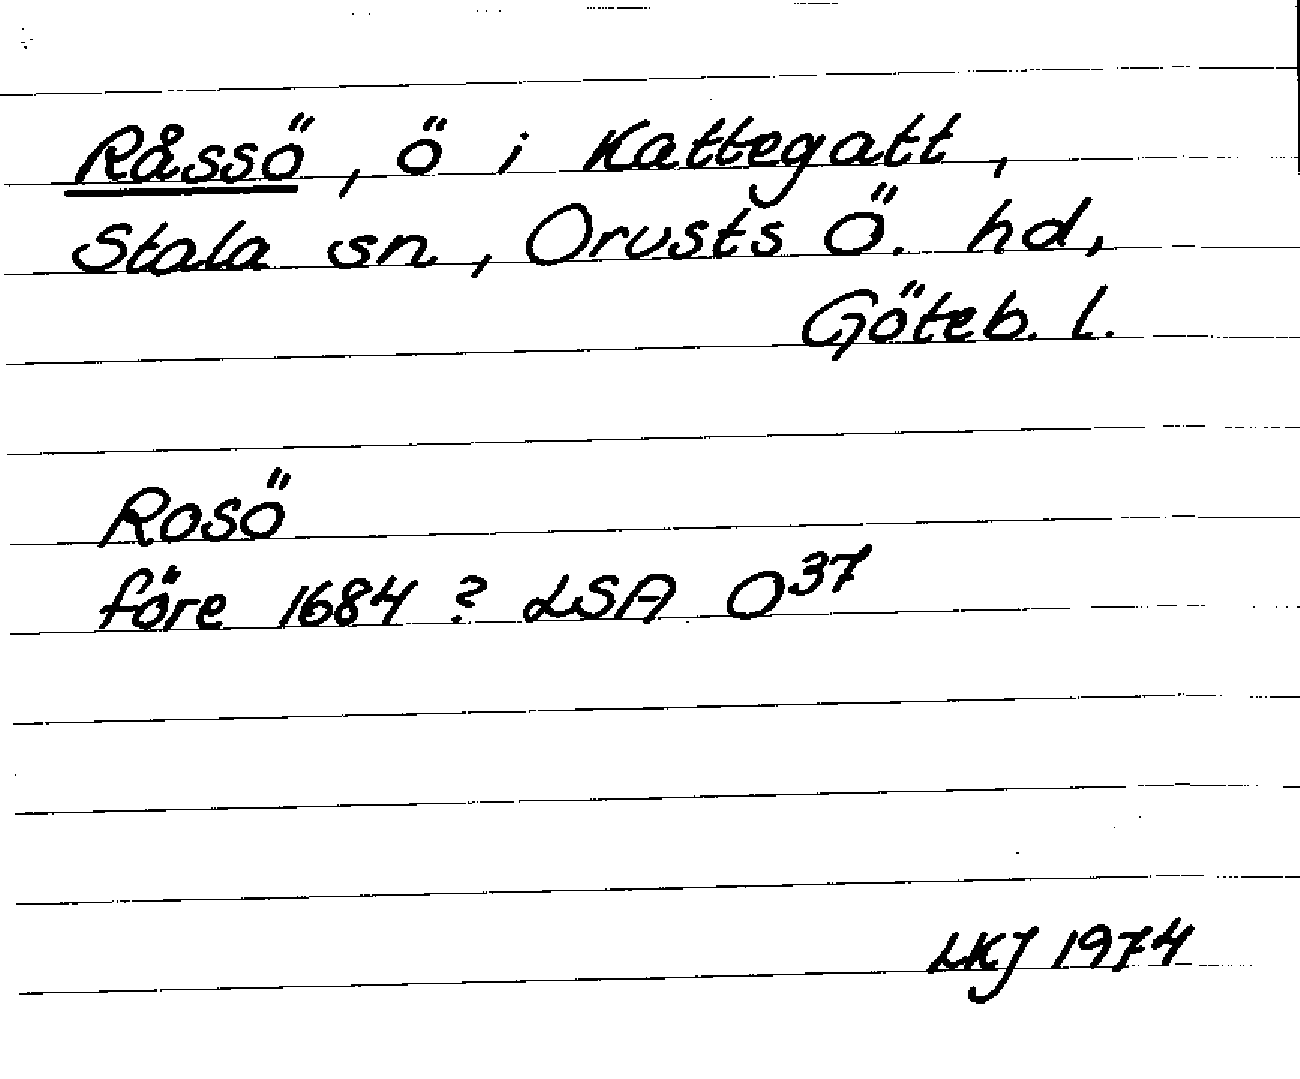 Råssö, ö i Kattegatt,
Stala sn., Orusts Ö. hd,
Göteb. l.
Rosö
före 1684 ? LSA O³⁷
LKJ 1974